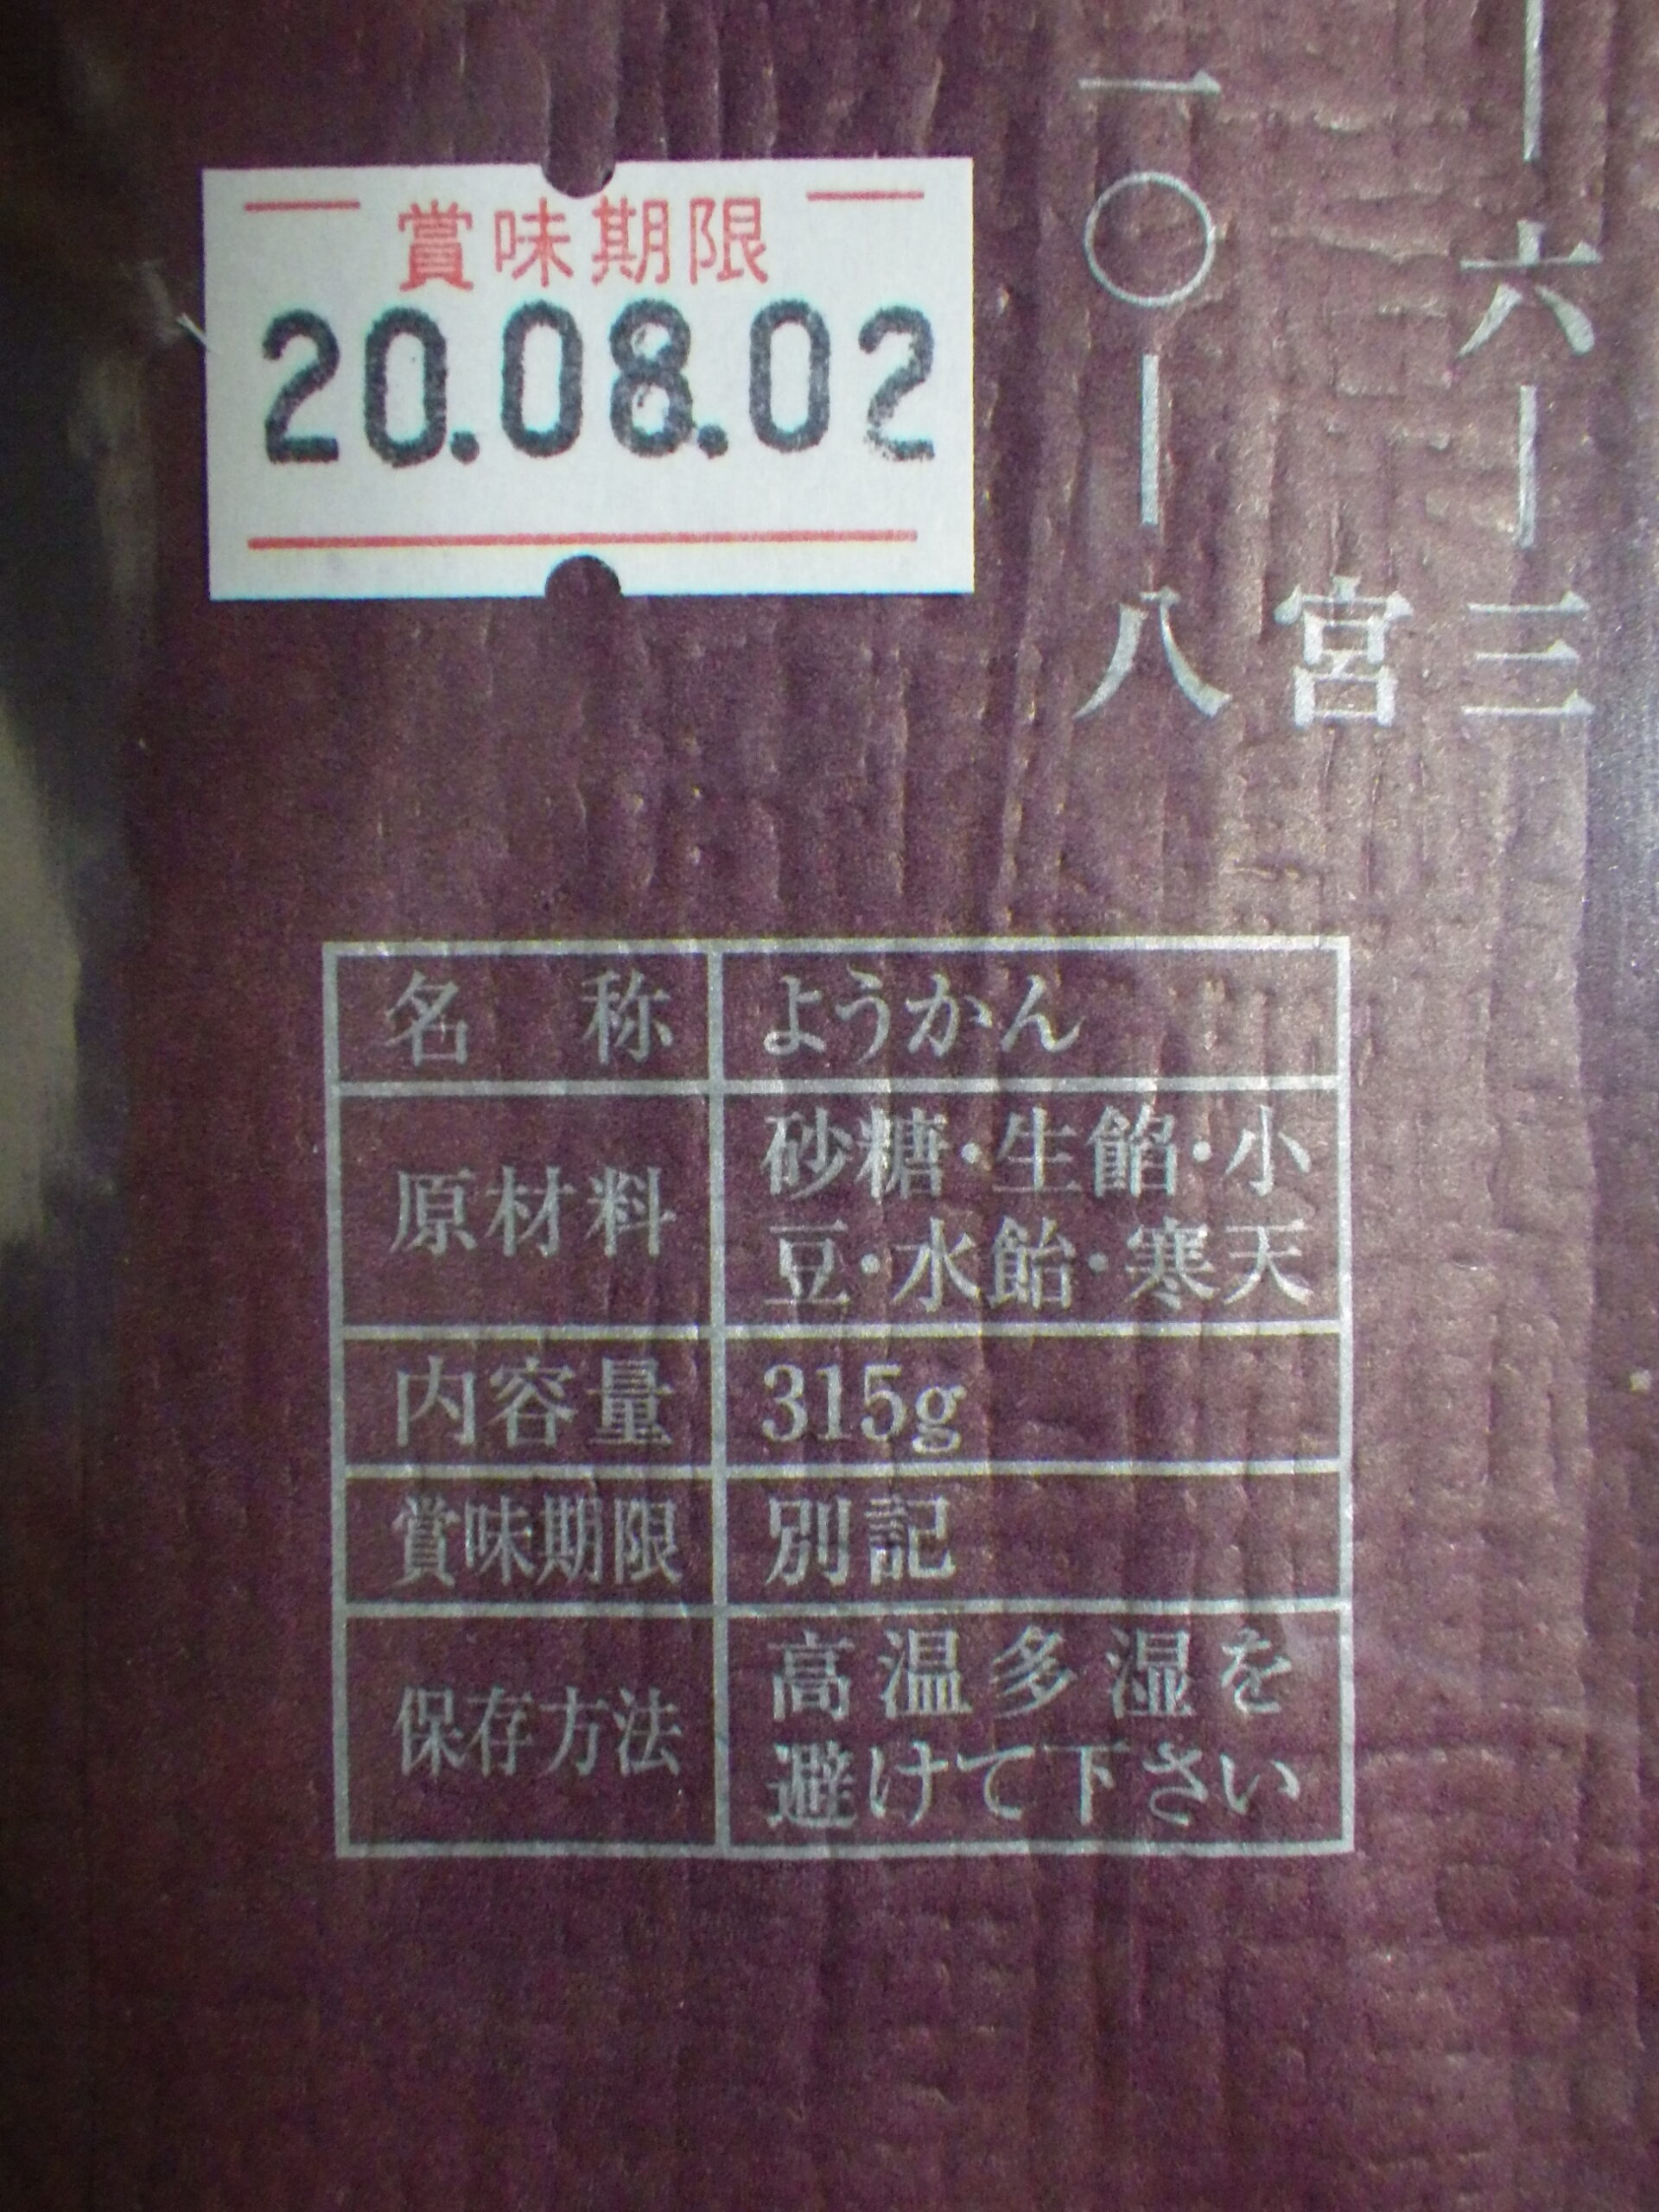 賞味期限
20.08.02
｜六｜三
宮
一〇｜八
名称 ようかん
原材料 砂糖・生餡・小
豆・水飴・寒天
内容量 315g
賞味期限 別記
保存方法 高温多湿を
避けて下さい